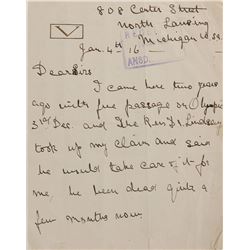 808 Center Street
North Lansing
Michigan U.S.
Jan. 4th 16
ANSD.
Dear Sirs
I came here two years
ago with free passage on Olympic
3rd Dec. and The Rev Dr Lindsay
took up my claim and said
he would take care of it for
me he been dead quite a
few months now.